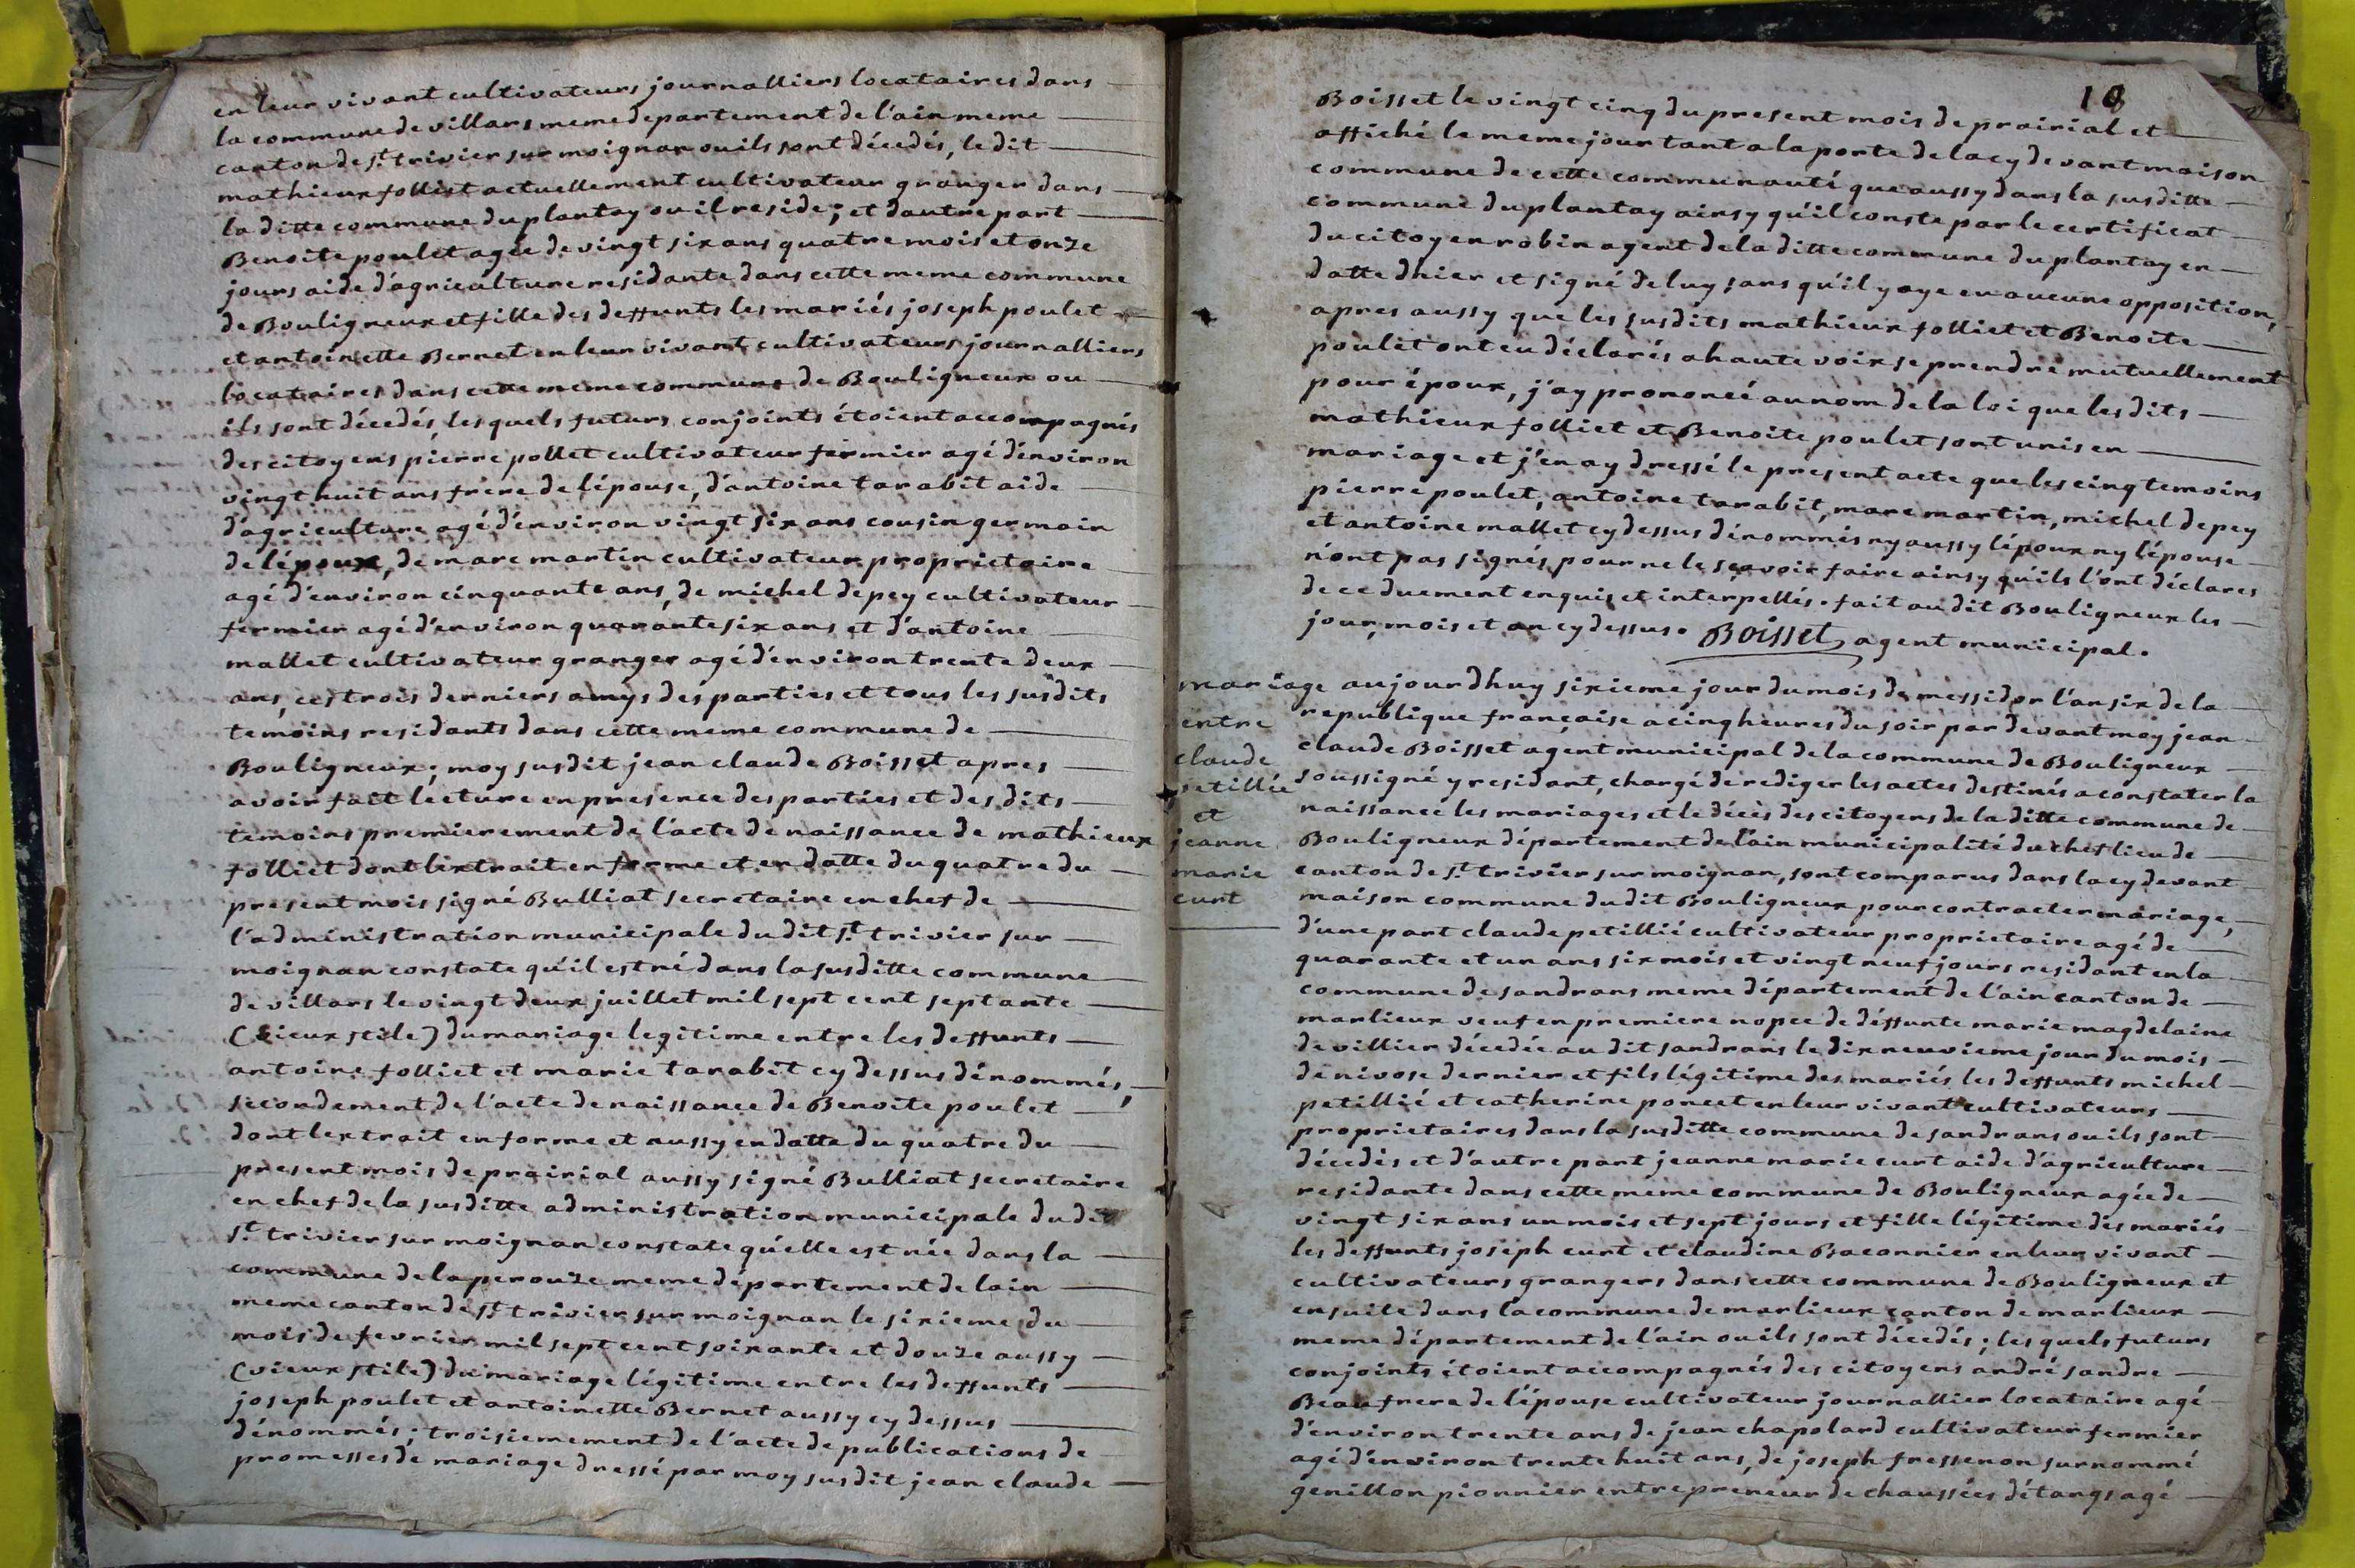 en leur vivant cultivateurs journalliers locataires dans
la commune de villars meme departement de l'ain meme
canton de st. trivier sur moignan ou ils sont décedés, le dit
mathieux folliet actuellement cultivateur granger dans
la ditte commune du plantay ou il reside; et d'autre part
Benoite poulet agée de vingt six ans quatre mois et onze
jours aide d'agriculture residante dans cette meme commune
de Bouligneux et fille des deffunts les mariés joseph poulet
et antoinette Bernet en leur vivant cultivateurs journalliers
locataires dans cette meme commune de Bouligneux ou
ils sont décedés, les quels futurs conjoints étoient accompagnés
des citoyens pierre pollet cultivateur fermier agé d'environ
vingt huit ans frere de l'épouse, d'antoine tarabit aide
d'agriculture agé d'environ vingt six ans cousin germain
de l'époux, de marc martin cultivateur proprietaire
agé d'environ cinquante ans, de michel depey cultivateur
fermier agé d'environ quarante six ans et d'antoine
mallet cultivateur granger agé d'environ trente deux
ans, ces trois derniers amys des parties et tous les susdits
temoins residants dans cette meme commune de
Bouligneux; moy susdit jean claude Boisset apres
avoir fait lecture en presence des parties et des dits
temoins premierement de l'acte de naissance de mathieux
folliet dont l'extrait en forme et en datte du quatre du
present mois signé Bulliat secretaire en chef de
l'administration municipale du dit st. trivier sur
moignan constate qu'il est né dans la susditte commune
de villars le vingt deux juillet mil sept cent septante
(vieux stile) du mariage legitime entre les deffunts
antoine folliet et marie tarabit cy dessus dénommés,
secondement de l'acte de naissance de Benoite poulet
dont l'extrait en forme et aussy en datte du quatre du
present mois de prairial aussy signé Bulliat secretaire
en chef de la susditte administration municipale du dit
st. trivier sur moignan constate qu'elle est née dans la
commune de laperouze meme département de lain
meme canton de st. trivier sur moignan le sixieme du
mois de fevrier mil sept cent soixante et douze aussy
(vieux stile) du mariage légitime entre les deffunts
joseph poulet et antoinette Bernet aussy cy dessus
dénommés; troisiemement de l'acte de publications de
promesses de mariage dressé par moy susdit jean claude
Boisset le vingt cinq du present mois de prairial et
affiché le meme jour tant a la porte de la cy devant maison
commune de cette communauté que aussy dans la susditte
commune du plantay ainsy qu'il conste par le certificat
du citoyen robin agent de la ditte commune du plantay en
datte dhier et signé de luy, sans qu'il y aye eu aucune opposition,
apres aussy que les susdits mathieux folliet et Benoite
poulet ont eu déclarés a haute voix se prendre mutuellement
pour époux, j'ay prononcé au nom de la loi que les dits
mathieux folliet et Benoite poulet sont unis en
mariage et j'en ay dressé le present acte que les cinq temoins
pierre poulet, antoine tarabit, marc martin, michel depey
et antoine mallet cy dessus dénommés ny aussy l'époux ny l'épouse
n'ont pas signés pour ne le sçavoir faire ainsy qu'ils l'ont déclarés
de ce duement enquis et interpellés. fait au dit Bouligneux les
jour, mois et an cy dessus. Boisset agent municipal.
mariage
entre
claude
petillié
et
jeanne
marie
curt
aujourdhuy sixieme jour du mois de messidor l'an six de la
republique française a cinq heures du soir par devant moy jean
claude Boisset agent municipal de la commune de Bouligneux
soussigné y residant, chargé de rediger les actes destinés a constater la
naissance les mariages et le décès des citoyens de la ditte commune de
Bouligneux département de l'ain municipalité du chef lieu de
canton de st. trivier sur moignan, sont comparus dans la cy devant
maison commune du dit Bouligneux pour contracter mariage,
d'une part claude petillié cultivateur proprietaire agé de
quarante et un ans six mois et vingt neuf jours residant en la
commune de sandrans meme département de l'ain canton de
marlieux veuf en premiere nopce de déffunte marie magdelaine
devillier décedée au dit sandrans le dix neuvieme jour du mois
de nivose dernier et fils légitime des mariés les deffunts michel
petillié et catherine poncet en leur vivant cultivateurs
proprietaires dans la susditte commune de sandrans ou ils sont
décedés et d'autre part jeanne marie curt aide d'agriculture
residante dans cette meme commune de Bouligneux agée de
vingt six ans un mois et sept jours et fille légitime des mariés
les deffunts joseph curt et claudine Baconnier en leur vivant
cultivateurs grangers dans cette commune de Bouligneux et
ensuite dans la commune de marlieux canton de marlieux
meme département de l'ain ou ils sont décedés; les quels futurs
conjoints étoient accompagnés des citoyens andré sandre
Beaufrere de l'épouse cultivateur journallier locataire agé
d'environ trente ans de jean chapolard cultivateur fermier
agé d'environ trente huit ans, de joseph fressenon surnommé
genillon pionnier entrepreneur de chaussées d'étangs agé